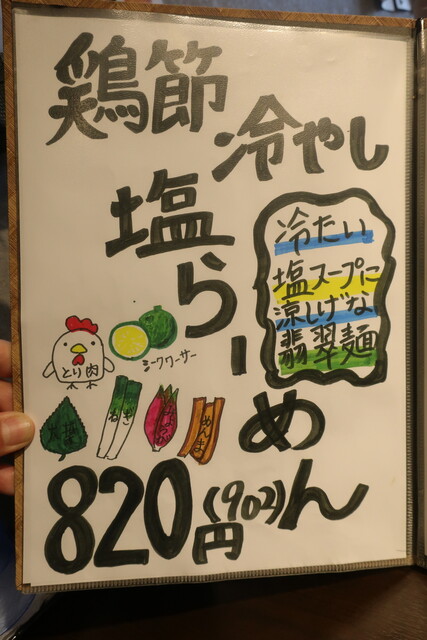 鶏節
冷やし
塩らーめん
冷たい
塩スープに
涼しげな
翡翠麺
シークワーサー
とり肉
大葉
ねぎ
みょうが
めんま
820円
(902)